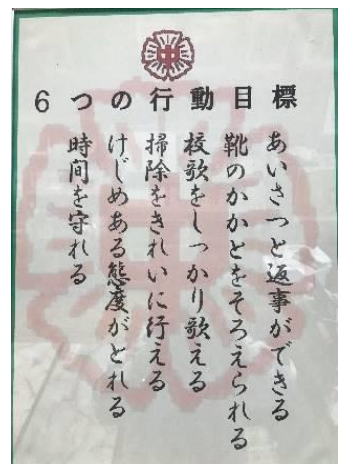 中
6つの行動目標
あいさつと返事ができる
靴のかかとをそろえられる
校歌をしっかり歌える
掃除をきれいに行える
けじめある態度がとれる
時間を守れる